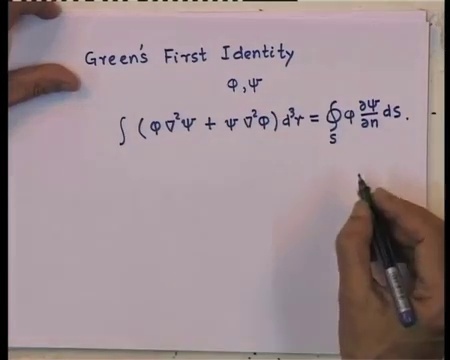 Green's First Identity
φ, ψ
∫ (φ ∇²ψ + ψ ∇²φ) d³r = ∮_S φ ∂ψ/∂n dS.